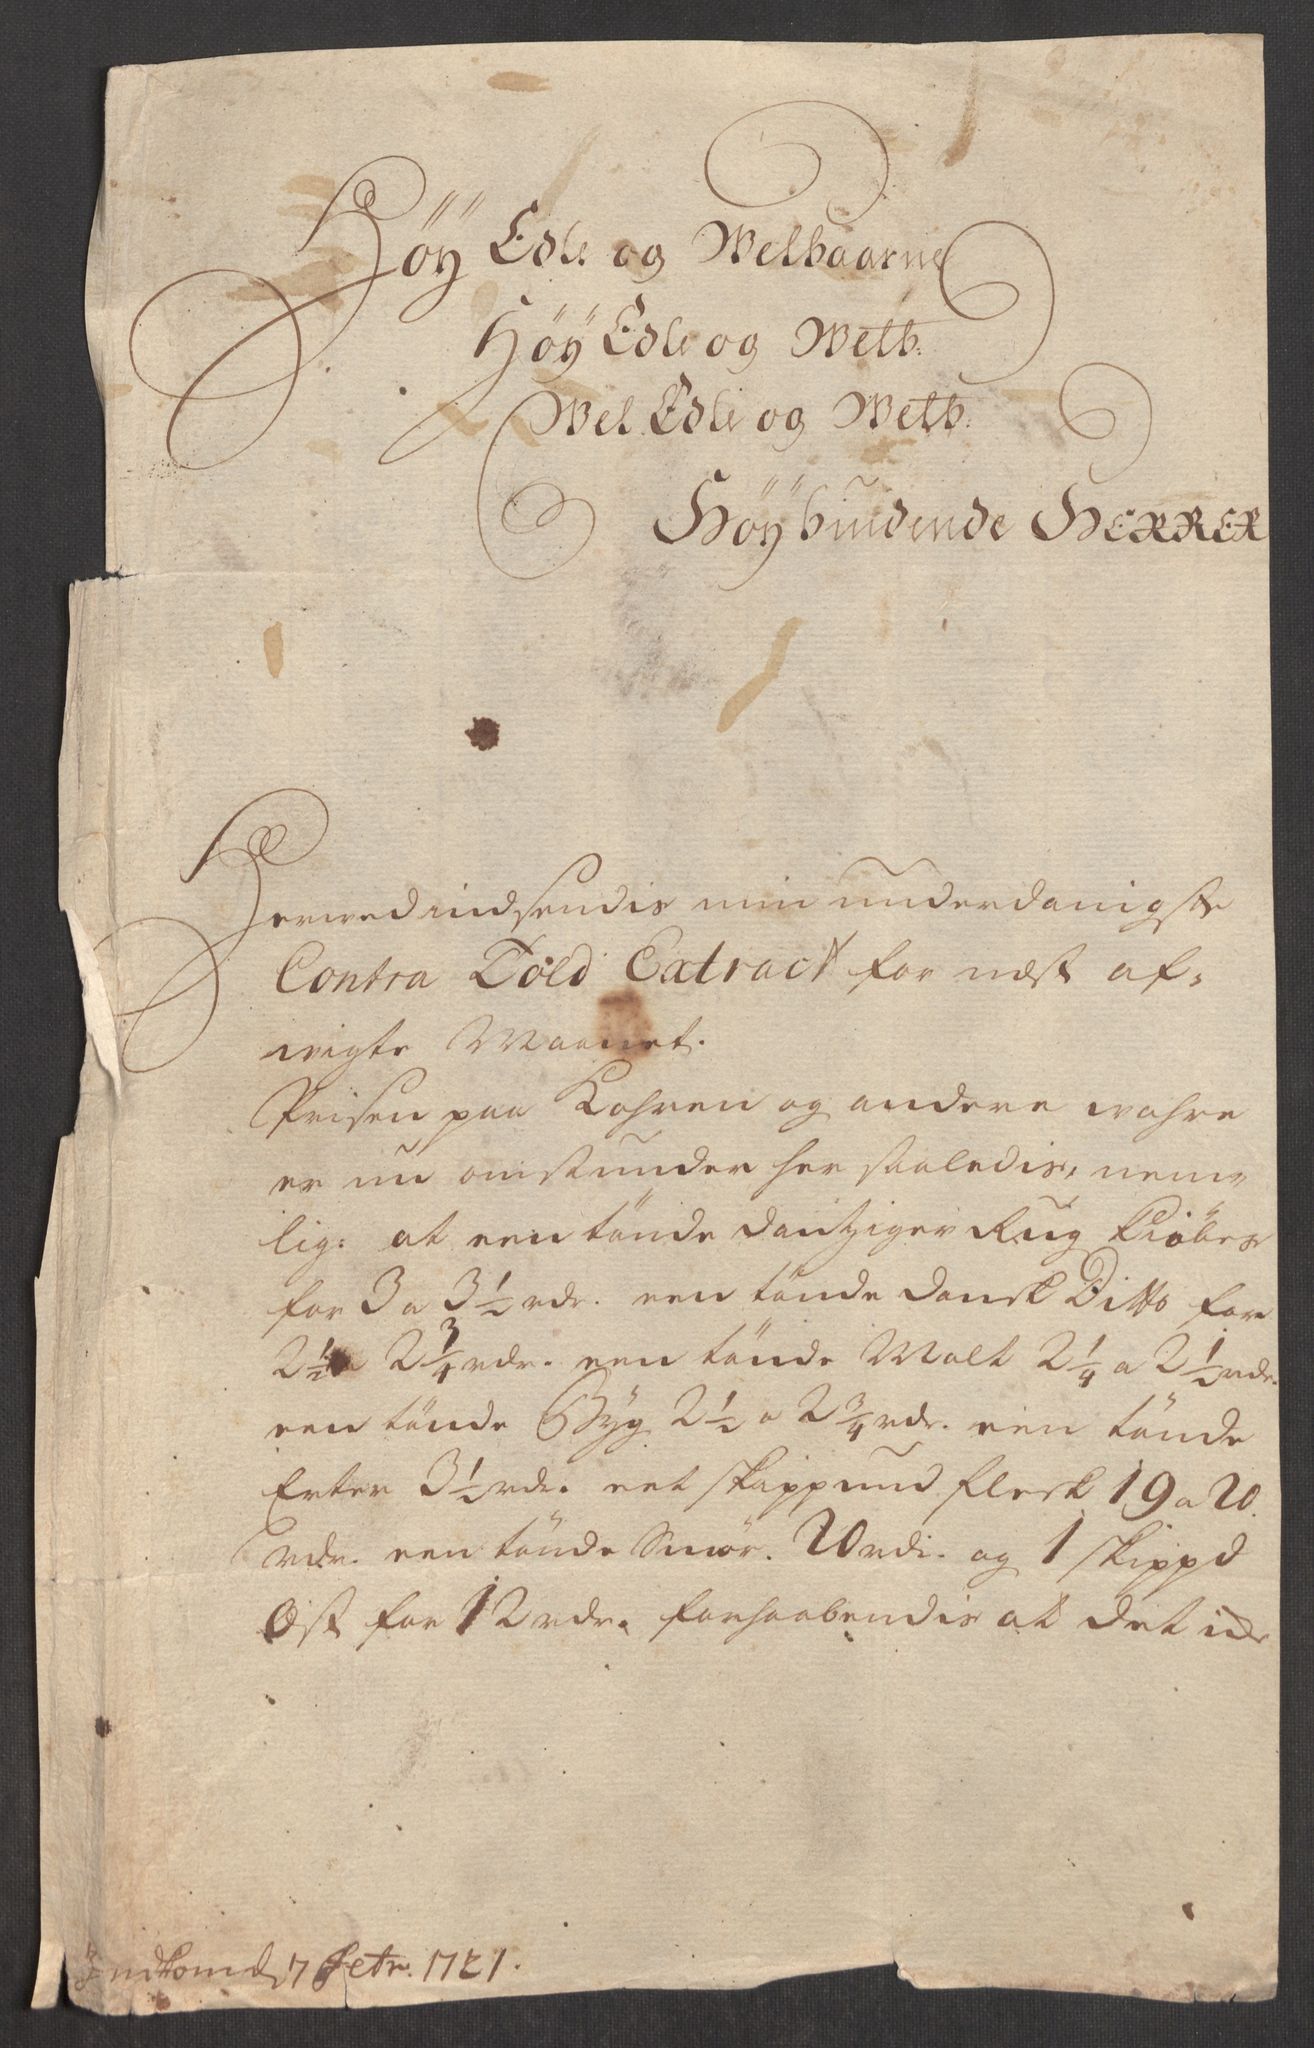 Höÿ Edle og Welbaarne
Höÿ Edle og Welb:
Wel Edle og Welb.
Höÿbiudende HERRER
Herved indsendis min underdanigste
Contra Told Extract for næst af-
wigte Maanet.
Prisen paa Kohren og andere wahre
er nu omstunder her saaledis, nem-
lig: at een tönde dantziger Rug Kiöbes
for 3 a 3½ rdr. een tönde dansk Ditto for
2½ a 2¾ rdr. een tönde Malt 2¼ a 2½ rdr.
een tönde Byg 2½ a 2¾ rdr. een tönde
Erter 3½ rdr. eet skippund flesk 19 a 20
rdr. een tönde Smör. 20 rdr. og 1 skippd
Ost for 12 rdr. forhaabendis at det ide
Indkomd 7 Febr. 1721.